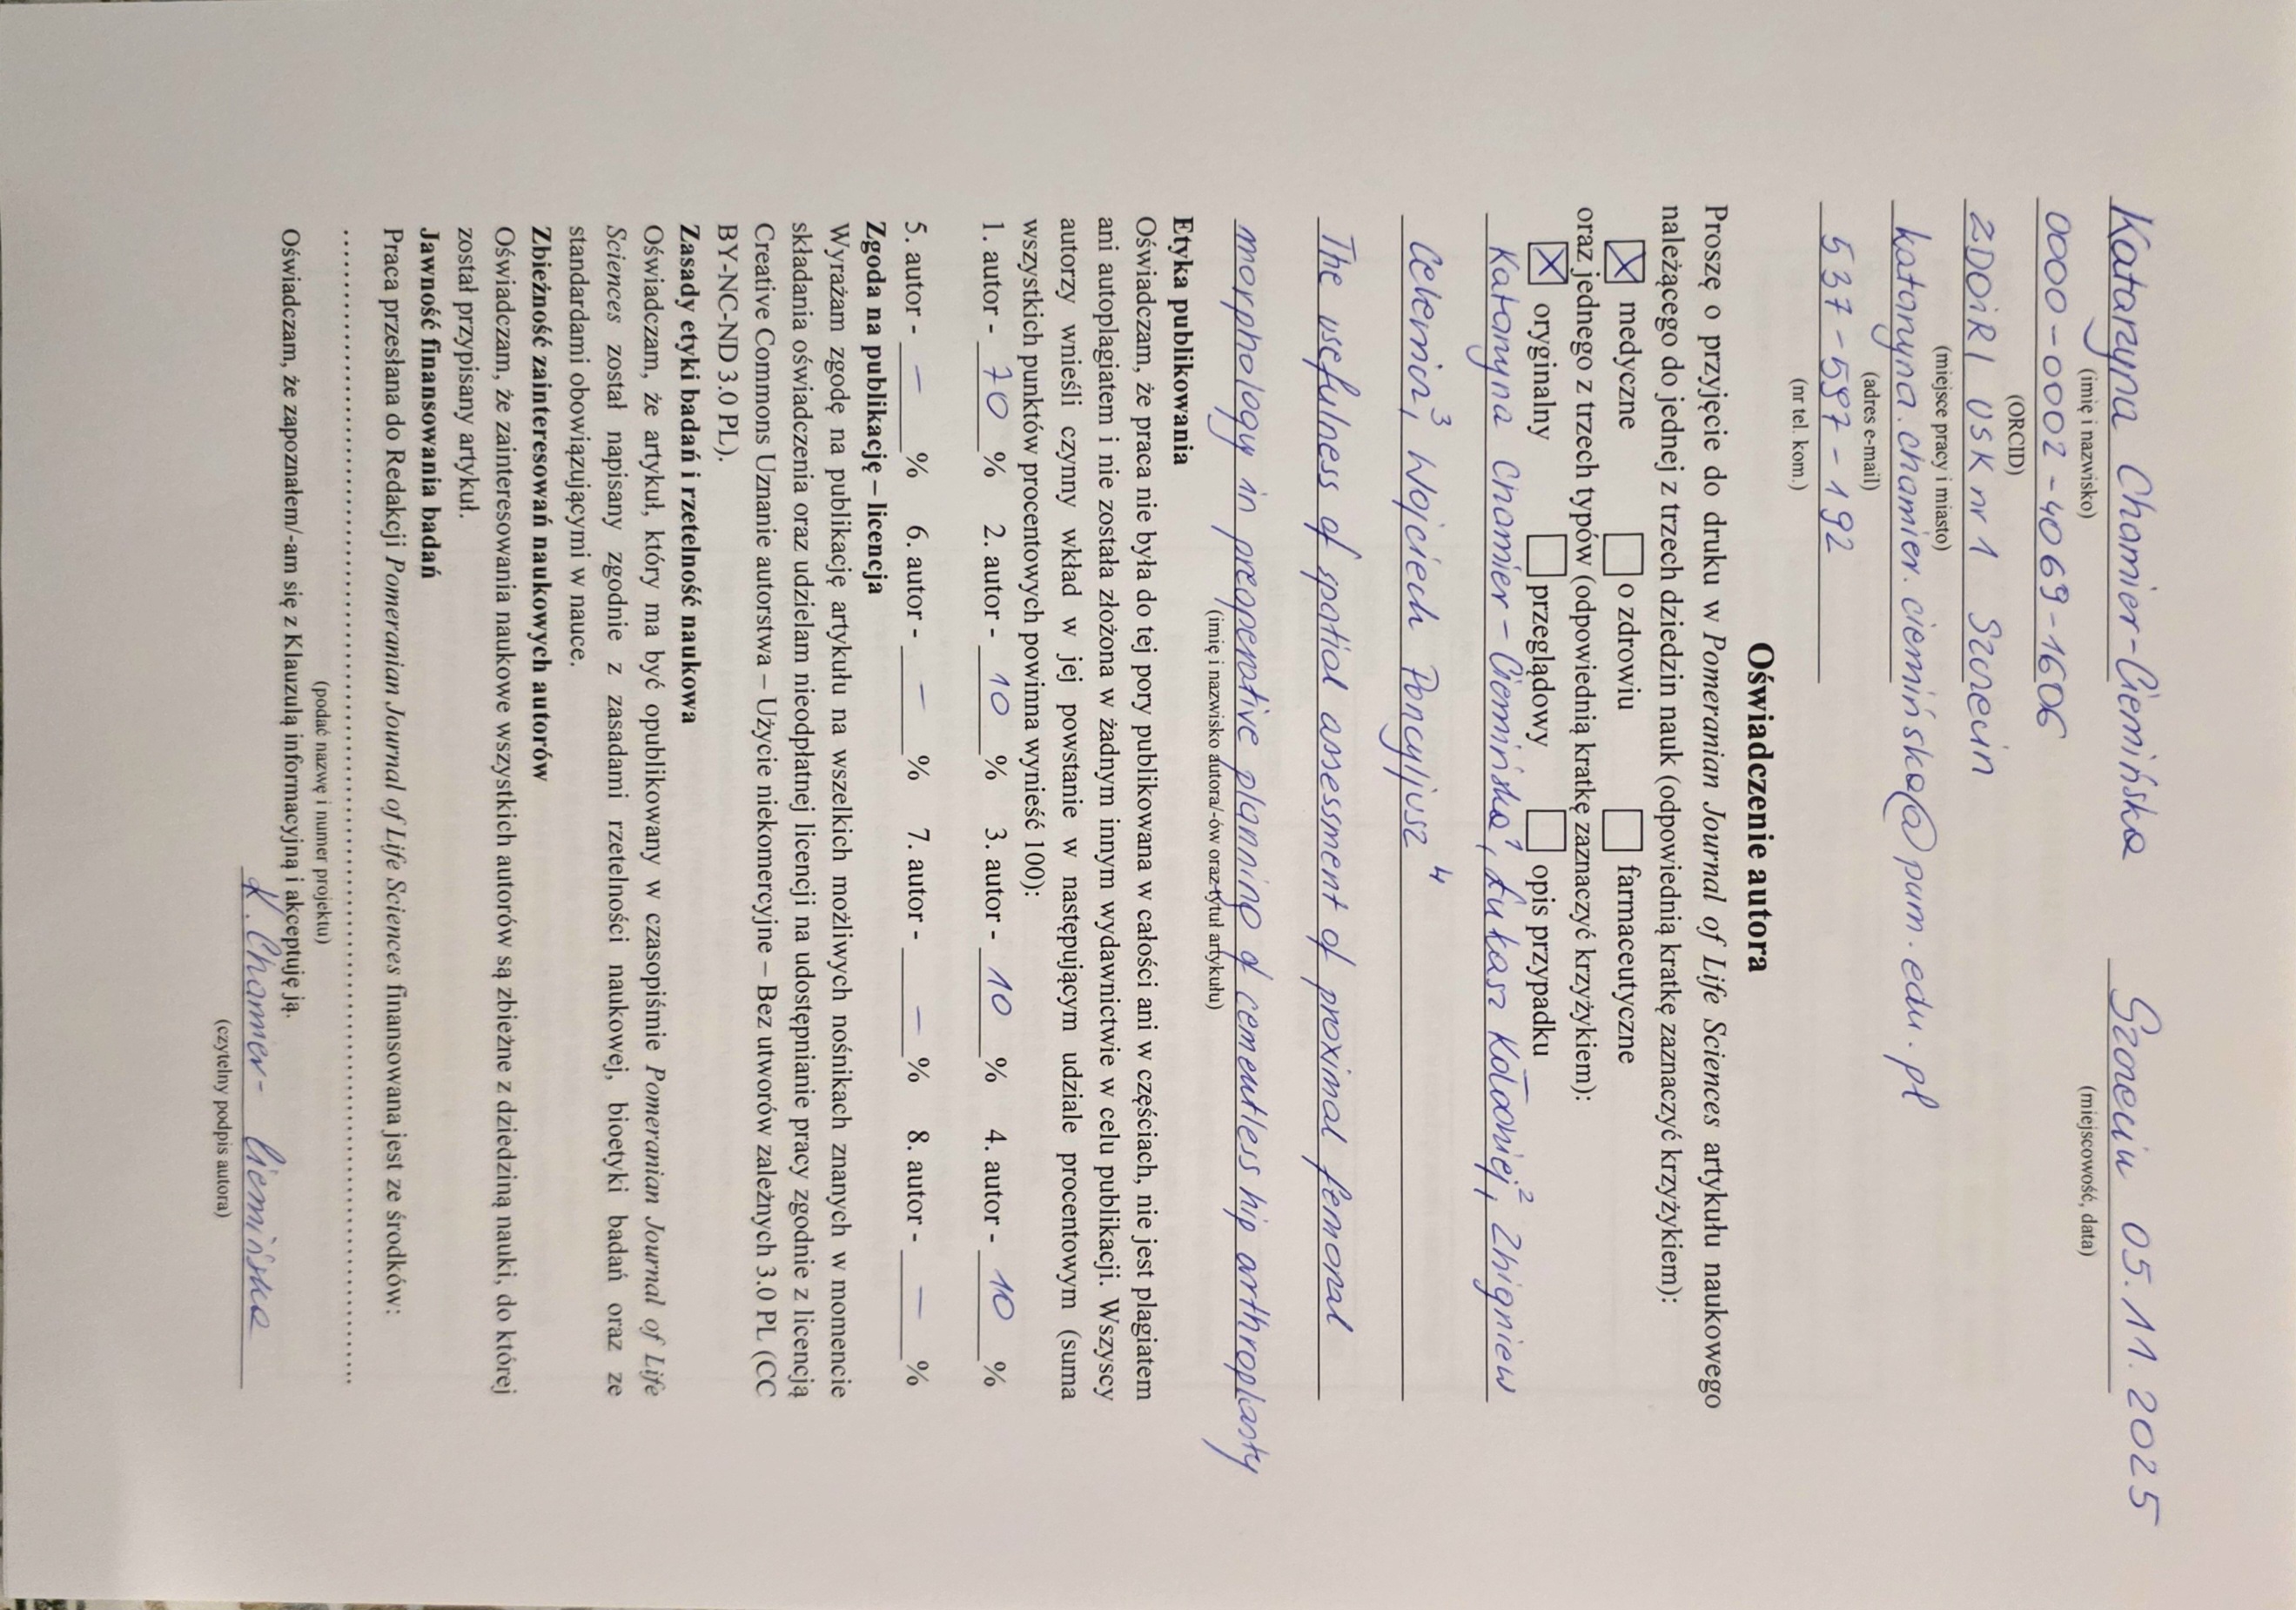 Katarzyna Chamier-Ciemińska
Szczecin 05.11.2025
(imię i nazwisko)
(miejscowość, data)
0000-0002-4069-1606
(ORCID)
ZDOiRI USK nr 1 Szczecin
(miejsce pracy i miasto)
katarzyna.chamier.cieminska@pum.edu.pl
(adres e-mail)
537-597-192
(nr tel. kom.)
Oświadczenie autora
Proszę o przyjęcie do druku w Pomeranian Journal of Life Sciences artykułu naukowego
należącego do jednej z trzech dziedzin nauk (odpowiednią kratkę zaznaczyć krzyżykiem):
☒ medyczne ☐ o zdrowiu ☐ farmaceutyczne
oraz jednego z trzech typów (odpowiednią kratkę zaznaczyć krzyżykiem):
☒ oryginalny ☐ przeglądowy ☐ opis przypadku
Katarzyna Chamier-Ciemińska¹, Łukasz Kołodziej², Zbigniew
Celewicz³, Wojciech Poncyljusz⁴
The usefulness of spatial assessment of proximal femoral
morphology in preoperative planning of cementless hip arthroplasty
(imię i nazwisko autora/-ów oraz tytuł artykułu)
Etyka publikowania
Oświadczam, że praca nie była do tej pory publikowana w całości ani w częściach, nie jest plagiatem
ani autoplagiatem i nie została złożona w żadnym innym wydawnictwie w celu publikacji. Wszyscy
autorzy wnieśli czynny wkład w jej powstanie w następującym udziale procentowym (suma
wszystkich punktów procentowych powinna wynieść 100):
1. autor - 70 % 2. autor - 10 % 3. autor - 10 % 4. autor - 10 %
5. autor - — % 6. autor - — % 7. autor - — % 8. autor - — %
Zgoda na publikację – licencja
Wyrażam zgodę na publikację artykułu na wszelkich możliwych nośnikach znanych w momencie
składania oświadczenia oraz udzielam nieodpłatnej licencji na udostępnianie pracy zgodnie z licencją
Creative Commons Uznanie autorstwa – Użycie niekomercyjne – Bez utworów zależnych 3.0 PL (CC
BY-NC-ND 3.0 PL).
Zasady etyki badań i rzetelność naukowa
Oświadczam, że artykuł, który ma być opublikowany w czasopiśmie Pomeranian Journal of Life
Sciences został napisany zgodnie z zasadami rzetelności naukowej, bioetyki badań oraz ze
standardami obowiązującymi w nauce.
Zbieżność zainteresowań naukowych autorów
Oświadczam, że zainteresowania naukowe wszystkich autorów są zbieżne z dziedziną nauki, do której
został przypisany artykuł.
Jawność finansowania badań
Praca przesłana do Redakcji Pomeranian Journal of Life Sciences finansowana jest ze środków:
(podać nazwę i numer projektu)
Oświadczam, że zapoznałem/-am się z Klauzulą informacyjną i akceptuję ją.
K. Chamier-Ciemińska
(czytelny podpis autora)